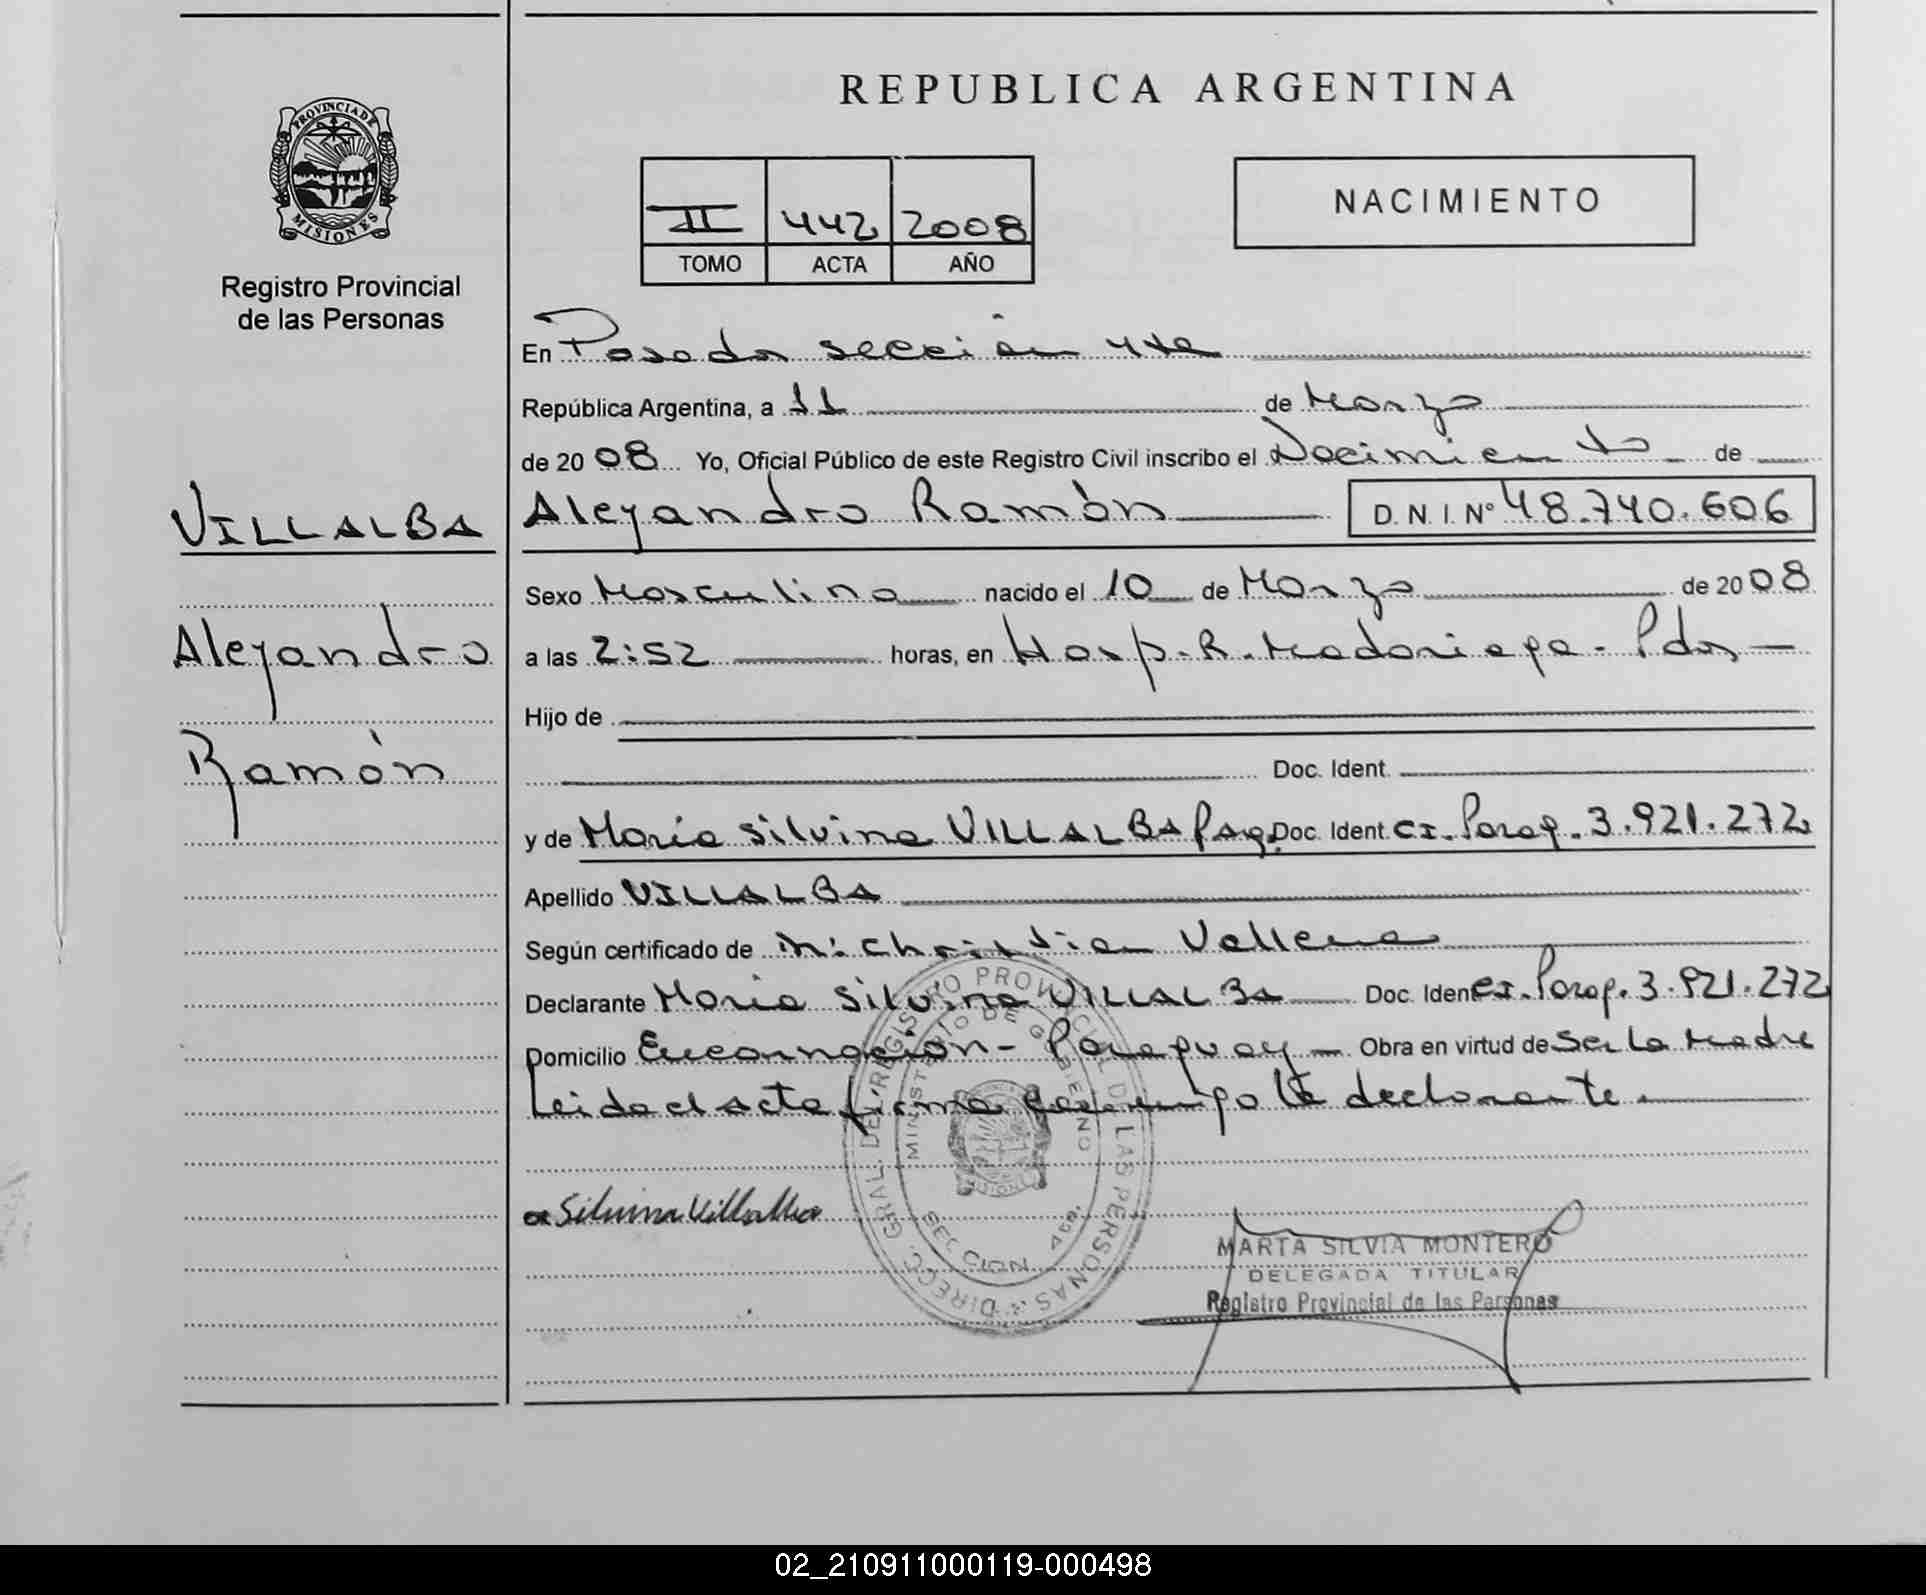 REPUBLICA ARGENTINA
PROVINCIA DE
MISIONES
Registro Provincial
de las Personas
II 442 2008
TOMO ACTA AÑO
NACIMIENTO
En Posadas sección 4ta
República Argentina, a 11 de Marzo
de 2008 Yo, Oficial Público de este Registro Civil inscribo el Nacimiento de
VILLALBA
Alejandro
Ramón
Alejandro Ramón D.N.I. Nº 48.740.606
Sexo Masculino nacido el 10 de Marzo de 2008
a las 2:52 horas, en Hosp. R. Madariaga - Pdas
Hijo de
Doc. Ident.
y de María Silvina VILLALBA Parag. Doc. Ident. CI. Parag. 3.921.272
Apellido VILLALBA
Según certificado de Christian
Declarante María Silvina VILLALBA Doc. Ident CI. Parag. 3.921.272
Domicilio Encarnación - Paraguay Obra en virtud de Ser la Madre
Leida el acta firma conmigo la declarante.
Silvina Villalba
DIRECC. GRAL. DEL REGISTRO PROVINCIAL DE LAS PERSONAS
MINISTERIO DE GOBIERNO
SECCION 4ta.
MISIONES
MARTA SILVIA MONTERO
DELEGADA TITULAR
Registro Provincial de las Personas
02_210911000119-000498